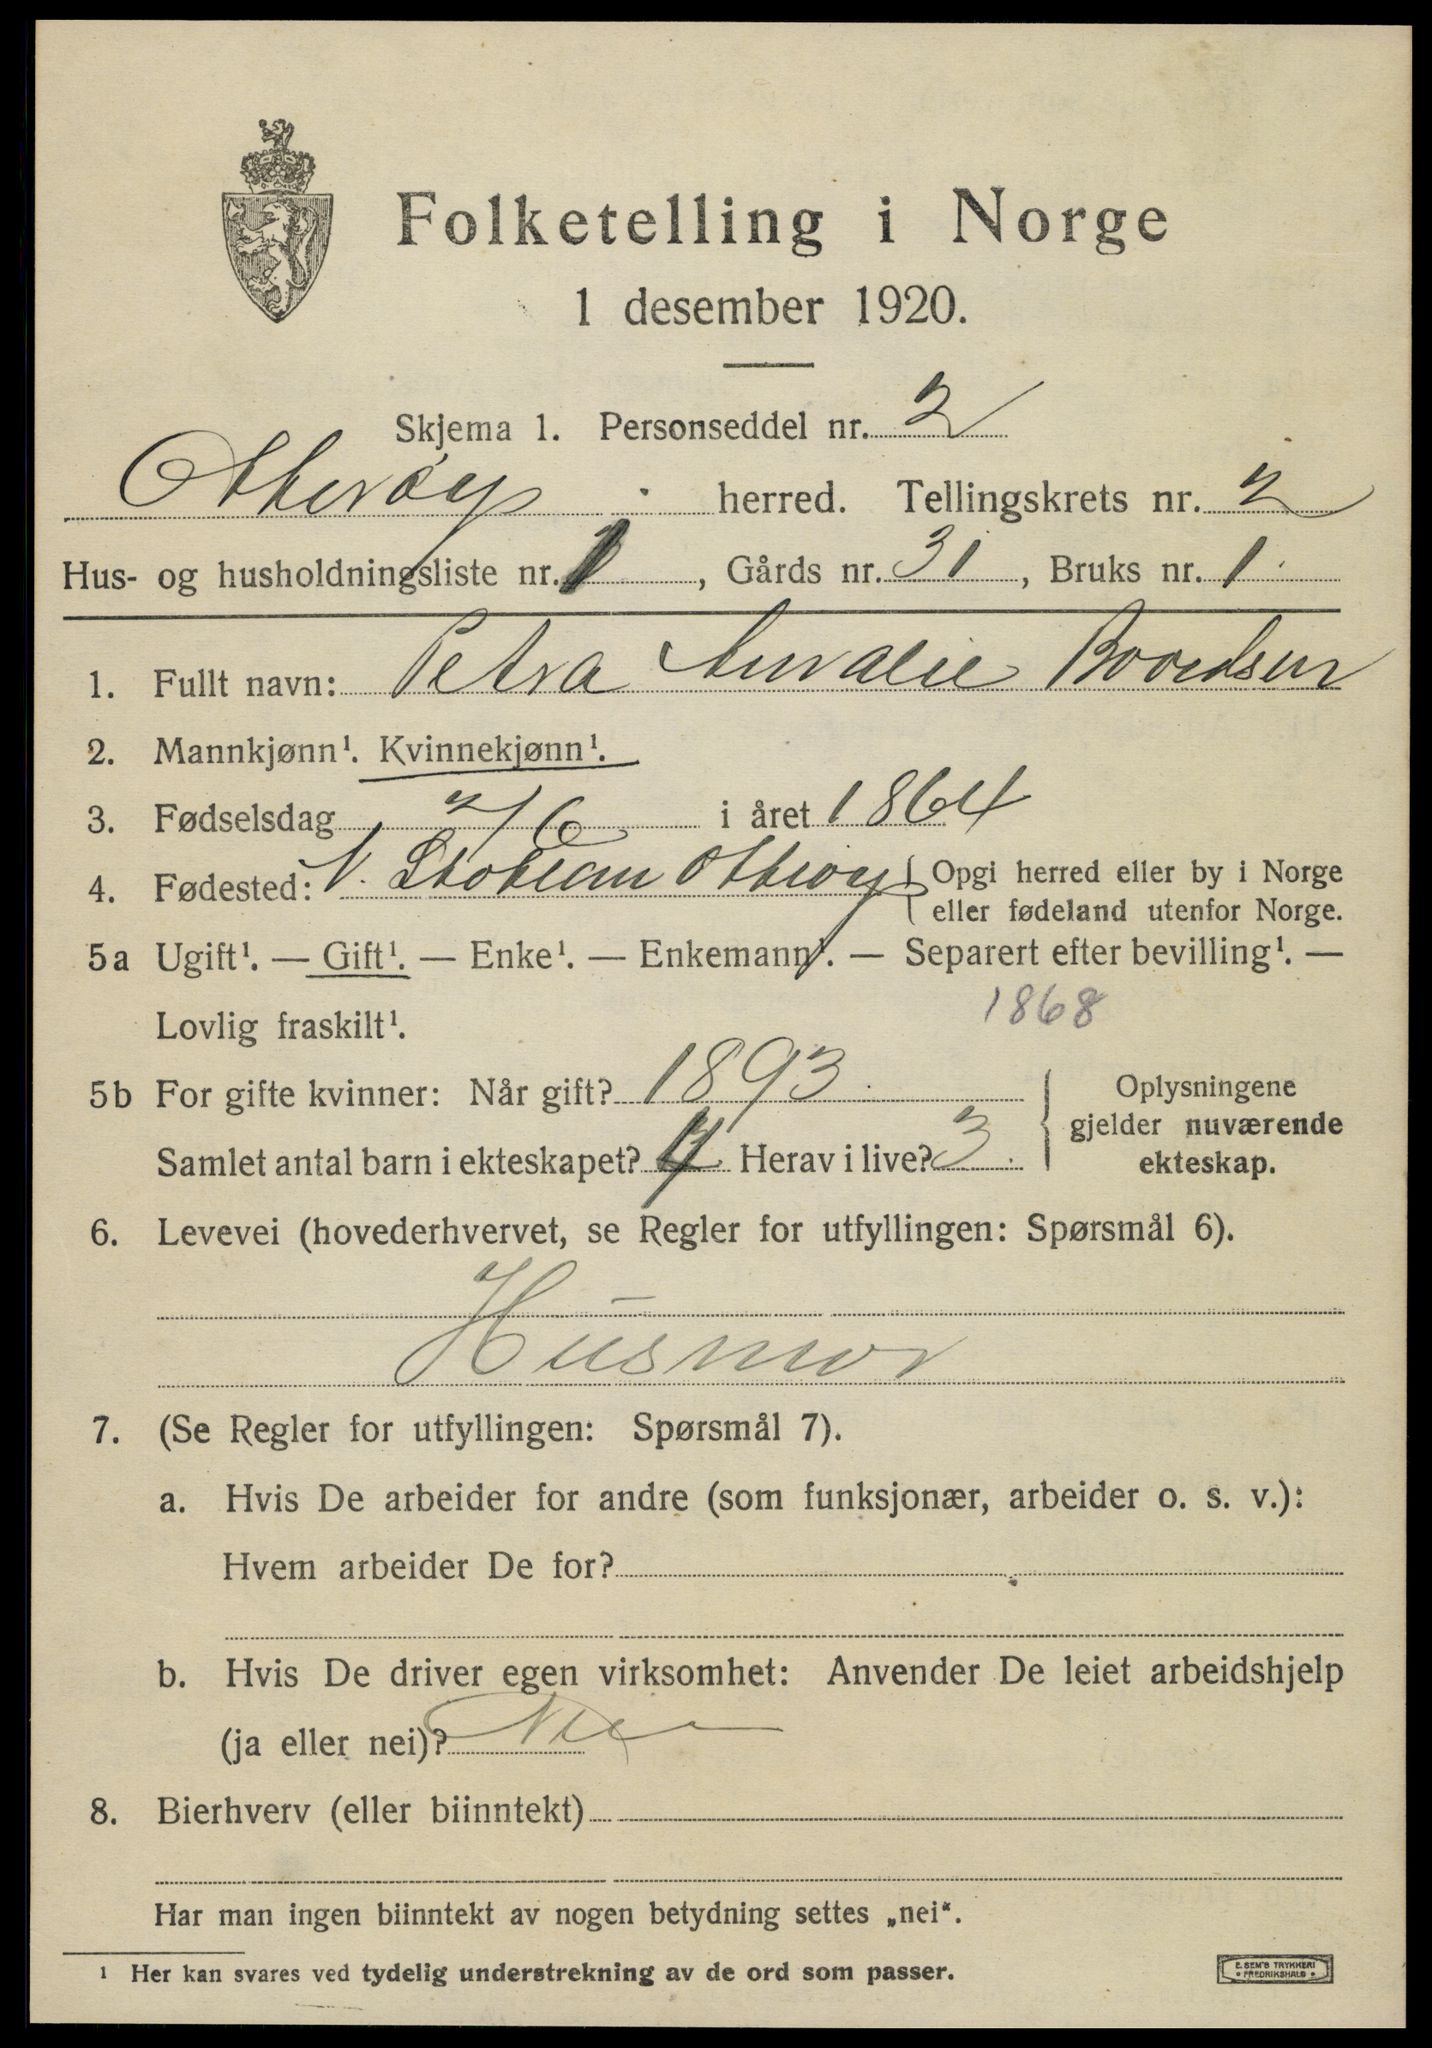 Folketelling i Norge
1 desember 1920.
Skjema 1. Personseddel nr. 2
Otterøy herred. Tellingskrets nr. 2
Hus- og husholdningsliste nr. 1, Gårds nr. 31, Bruks nr. 1.
1. Fullt navn: Petra Amalie Bordsen
2. Mannkjønn¹. Kvinnekjønn¹.
3. Fødselsdag 2/6 i året 1864
4. Fødested: N. Otterøy { Opgi herred eller by i Norge
eller fødeland utenfor Norge.
5a Ugift¹. — Gift¹. — Enke¹. — Enkemann¹. — Separert efter bevilling¹. —
Lovlig fraskilt¹. 1868
5b For gifte kvinner: Når gift? 1893. } Oplysningene
gjelder nuværende
Samlet antal barn i ekteskapet? 4 Herav i live? 3. ekteskap.
6. Levevei (hovederhvervet, se Regler for utfyllingen: Spørsmål 6).
Husmor
7. (Se Regler for utfyllingen: Spørsmål 7).
a. Hvis De arbeider for andre (som funksjonær, arbeider o. s. v.):
Hvem arbeider De for?
b. Hvis De driver egen virksomhet: Anvender De leiet arbeidshjelp
(ja eller nei)? Nei
8. Bierhverv (eller biinntekt)
Har man ingen biinntekt av nogen betydning settes „nei“.
¹ Her kan svares ved tydelig understrekning av de ord som passer.
E. SEM'S TRYKKERI
FREDRIKSHALD